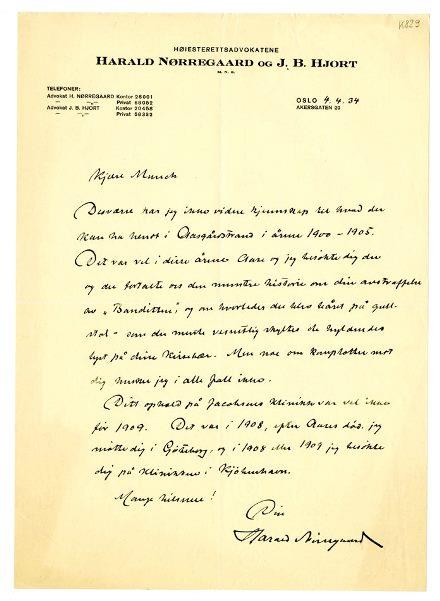 K829
HØIESTERETTSADVOKATENE
HARALD NØRREGAARD OG J. B. HJORT
M. N. S.
TELEFONER:
Advokat H. NØRREGAARD Kontor 26001
Privat
Advokat J. B. HJORT Kontor 20458
Privat
OSLO 4.4.34
AKERSGATEN 20
Kjære Munch
Desværre har jeg inno videre kjennskap til hvad der
kan ha hendt i Aasgårdstrand i årene 1900 – 1905.
Det var vel i disse årene Aase og jeg besøkte dig der
og du fortalte oss den muntre historie om din avstraffelse
av "Banditten", og om hvorledes du blev båret på gull-
stol – som du måtte vesentlig skyldes de hyldendes
lyst på dine Kirsebær. Men noe om komplotter mot
dig husker jeg i alle fall inno.
Ditt ophold på Jacobsens Klinikk var vel inno
før 1909. Det var i 1908, efter Aases død, jeg
møtte dig i Göteborg, og i 1908 eller 1909 jeg besøkte
dig på klinikken i Kjöbenhavn.
Mange hilsener!
Din
Harald Nörregaard